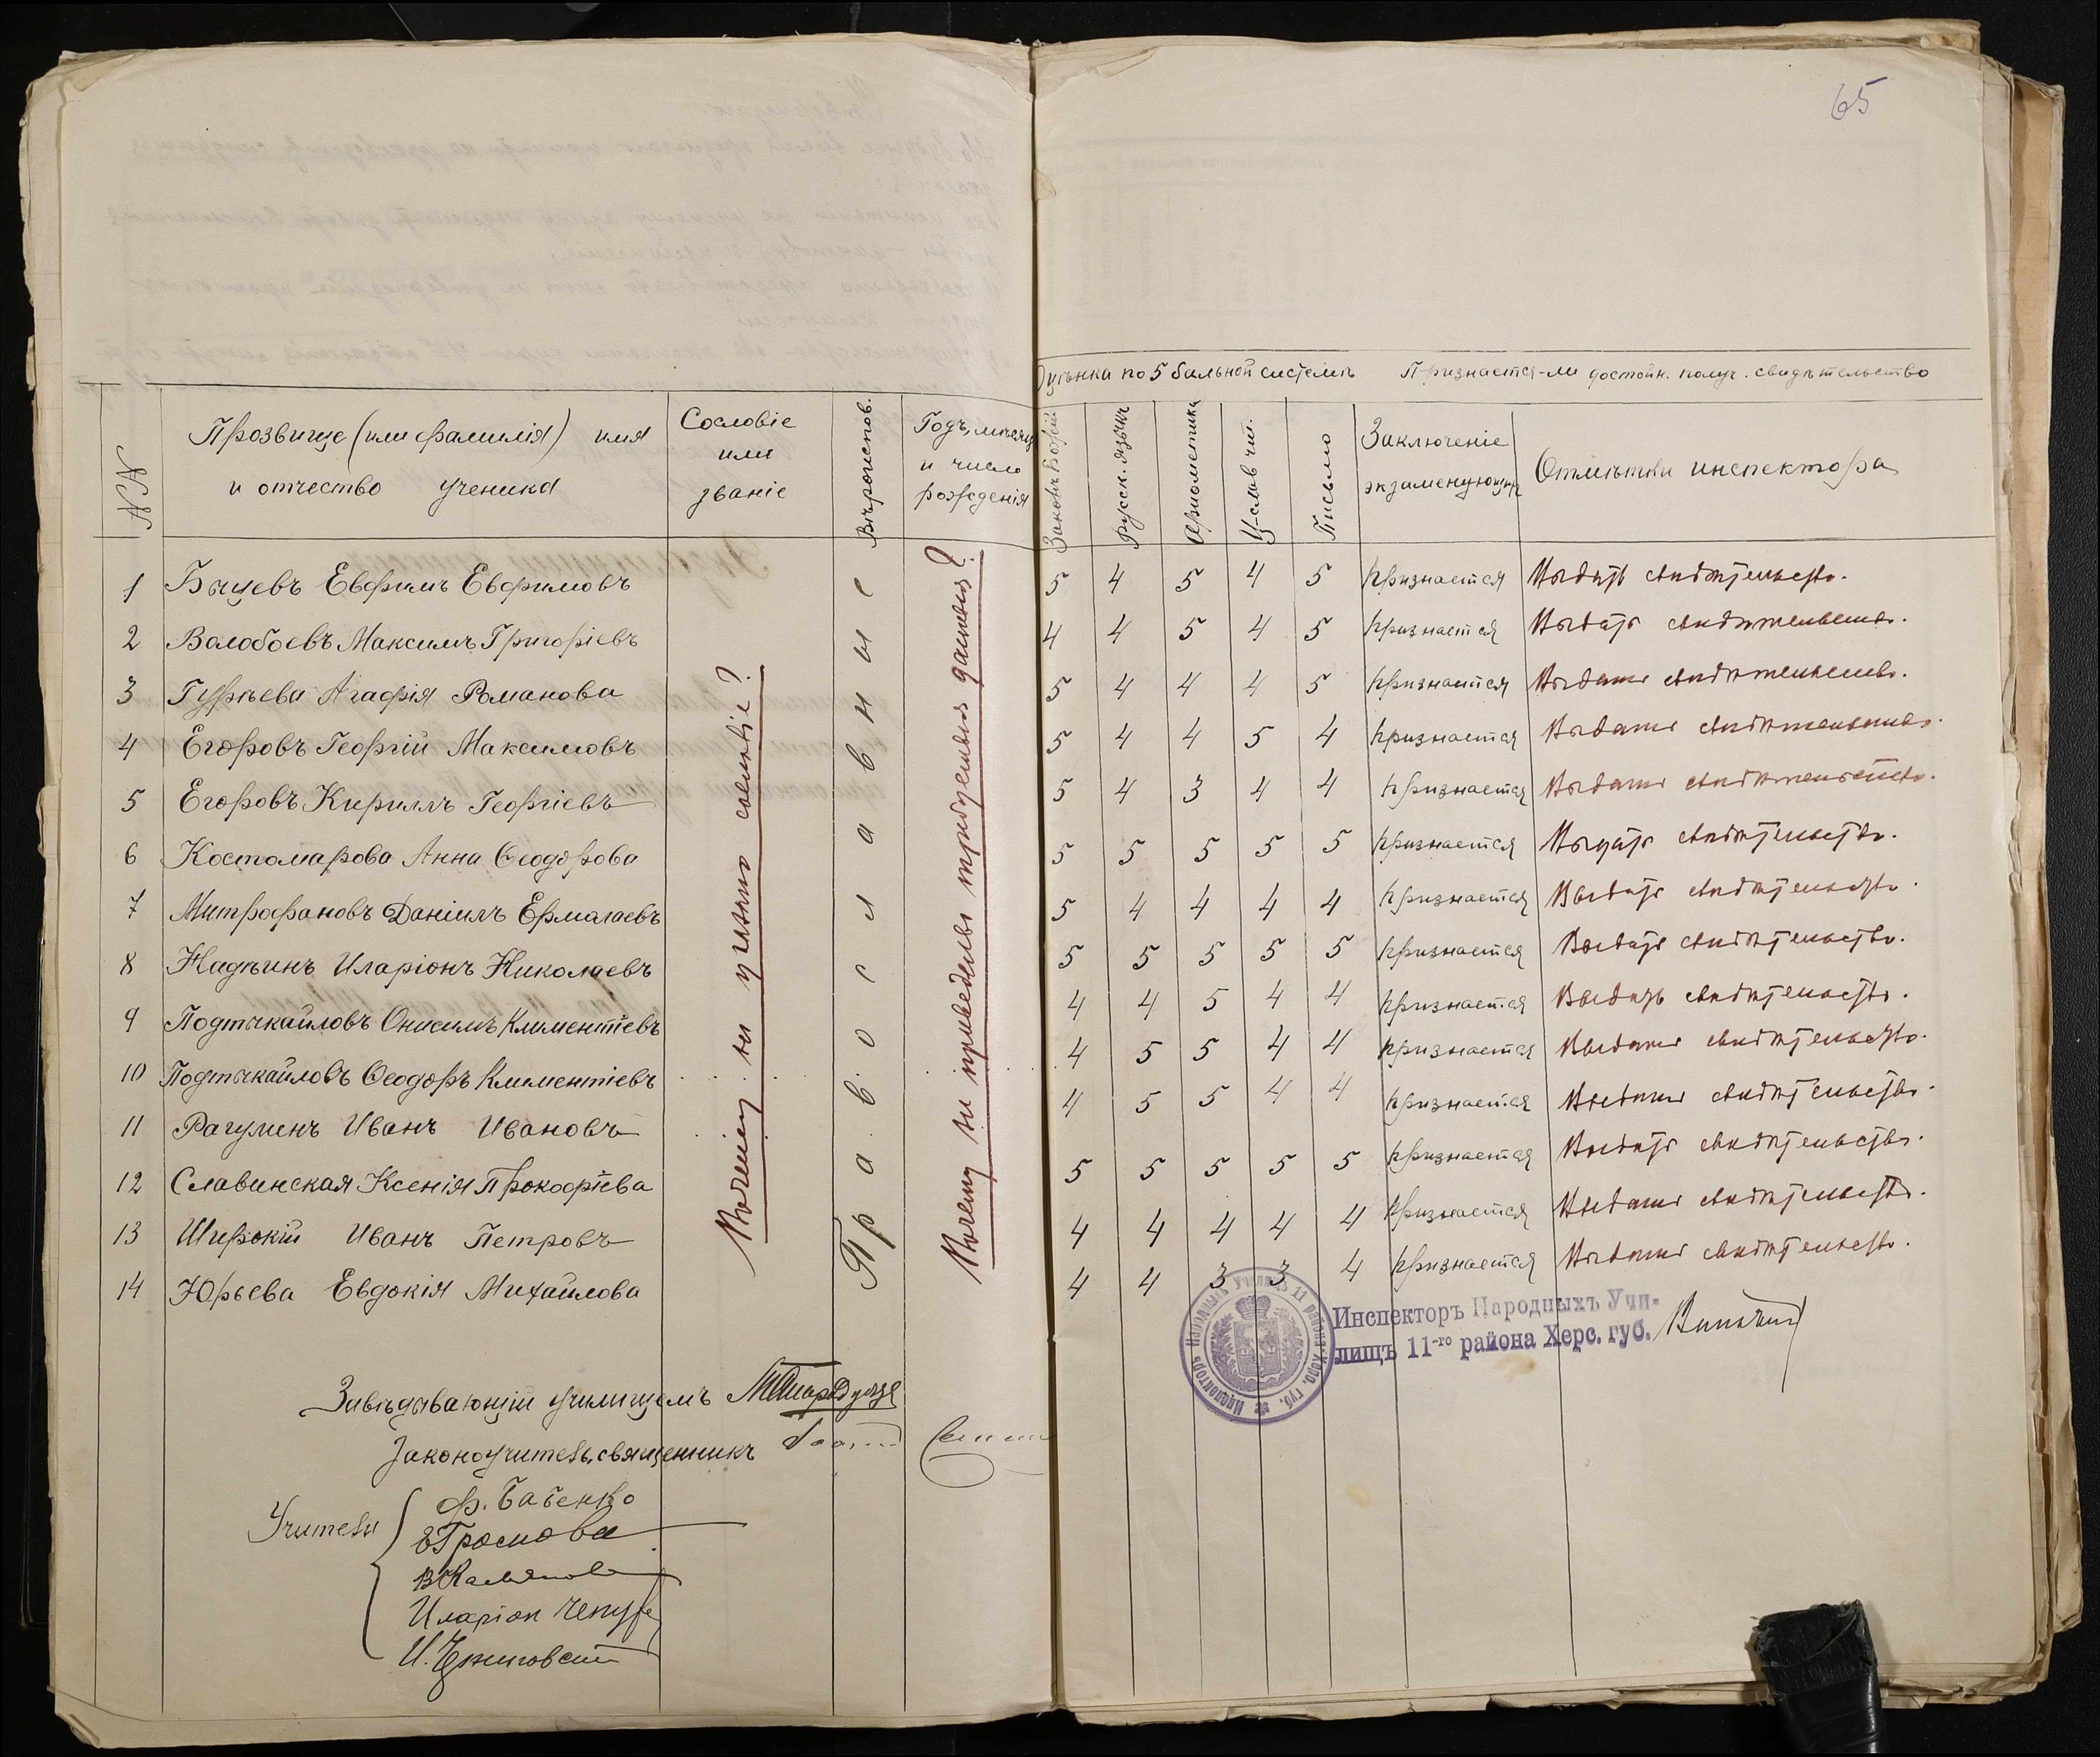 65
Оцѣнка по 5 бальной системѣ Признается-ли достойн. получ. свидѣтельство
№№
Прозвище (или фамилія) имя и отчество ученика
Сословіе или званіе
Вѣроисповѣд.
Годъ, мѣсяцъ и число рожденія
Законъ Божій
Русск. языкъ
Ариөметика
Ц-слав чт.
Письмо
Заключеніе экзаменующих
Отмѣтки инспектора
1 Бычевъ Евфимъ Евфимовъ 5 4 5 4 5 признается Выдать свидѣтельство.
2 Волобоевъ Максимъ Григоріевъ 4 4 5 4 5 признается Выдать свидѣтельство.
3 Гурьева Агафія Романова 5 4 4 4 5 признается Выдать свидѣтельство.
4 Егоровъ Георгій Максимовъ 5 4 4 5 4 признается Выдать свидѣтельство.
5 Егоровъ Кириллъ Георгіевъ 5 4 3 4 4 признается Выдать свидѣтельство.
6 Костомарова Анна Ѳеодорова 5 5 5 5 5 признается Выдать свидѣтельство.
7 Митрофановъ Даніилъ Ермалаевъ 5 4 4 4 4 признается Выдать свидѣтельство.
8 Надѣинъ Иларіонъ Николаевъ 5 5 5 5 5 признается Выдать свидѣтельство.
9 Подтыкайловъ Онисимъ Климентіевъ 4 4 5 4 4 признается Выдать свидѣтельство.
10 Подтыкайловъ Ѳеодоръ Климентіевъ 4 5 5 4 4 признается Выдать свидѣтельство.
11 Рагулинъ Иванъ Ивановъ 4 5 5 4 4 признается Выдать свидѣтельство.
12 Славинская Ксенія Прокофіева 5 5 5 5 5 признается Выдать свидѣтельство.
13 Широкій Иванъ Петровъ 4 4 4 4 4 признается Выдать свидѣтельство.
14 Юрьева Евдокія Михайлова 4 4 3 3 4 признается Выдать свидѣтельство.
Почему не указано сословіе?
Православные
Почему не приведены требуемыя данныя?
Инспекторъ Народныхъ Учи-
лищъ 11-го района Херс. губ.
Инспекторъ Народныхъ Училищъ 11 района Херс. губ.
Завѣдывающій училищемъ
Законоучитель, священникъ
Учителя
Ф. Бабенко
Е Громова
Иларіон
И.